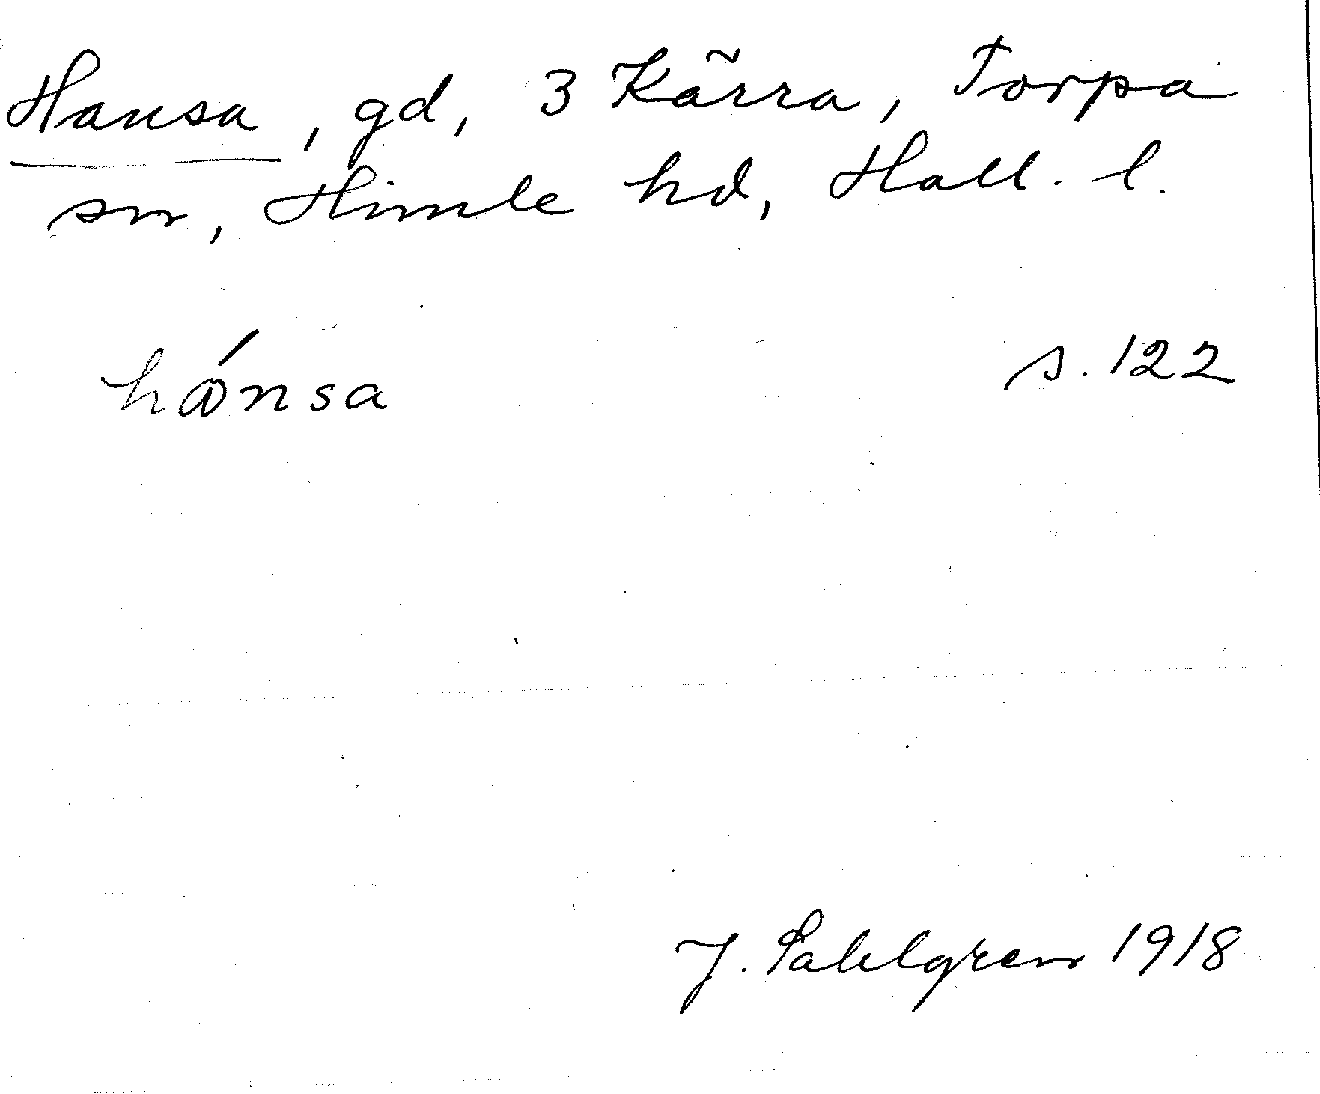 Hansa, gd, 3 Kärra, Torpa
sn, Himle hd, Hall. l.
hánsa s. 122
J. Sahlgren 1918